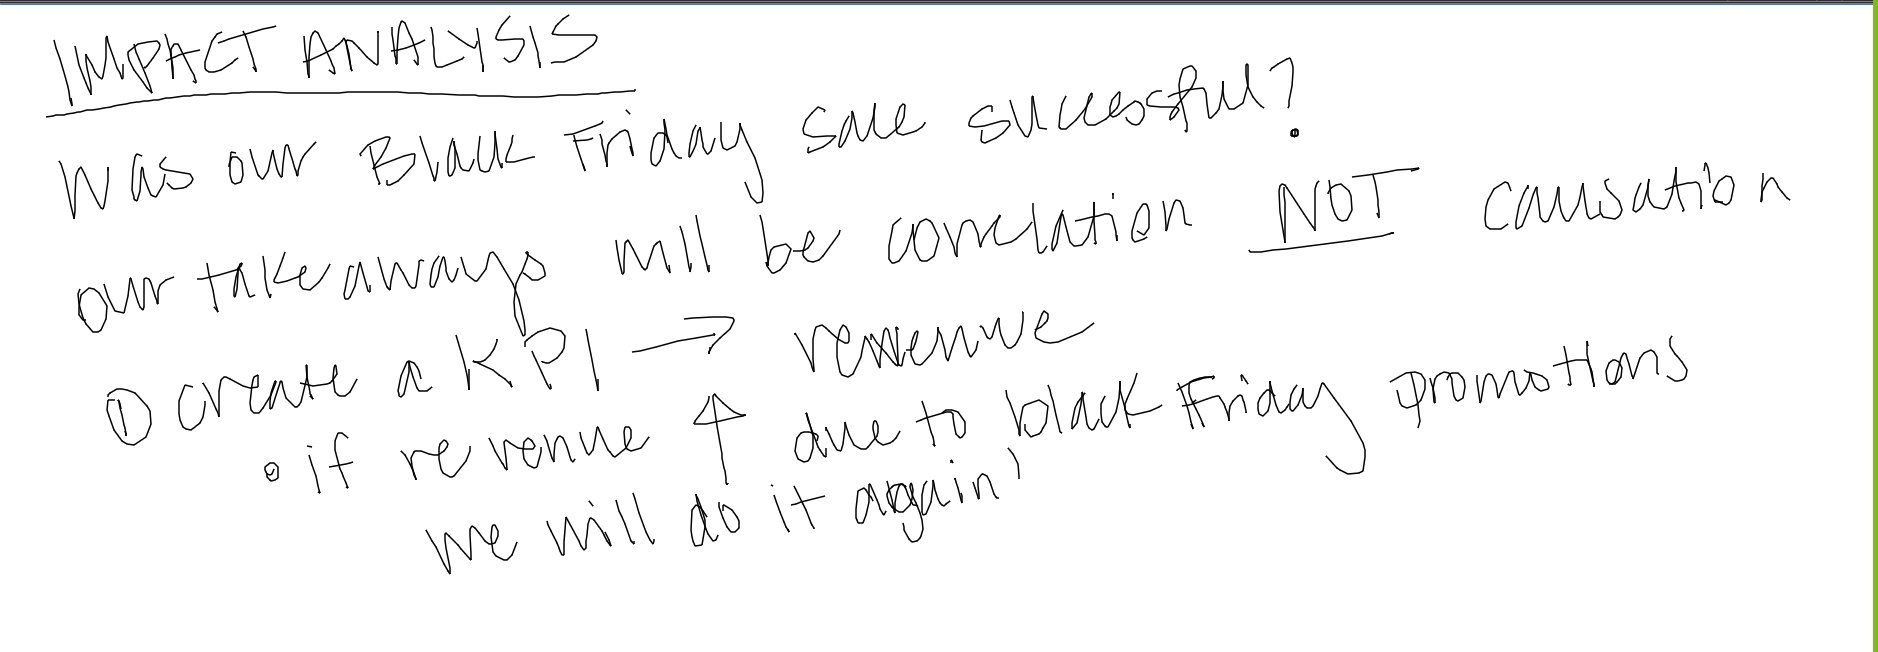 IMPACT ANALYSIS
Was our Black Friday sale successful?
our takeaways will be correlation NOT causation
① create a KPI → revenue
• if revenue ↑ due to black Friday promotions
we will do it again'